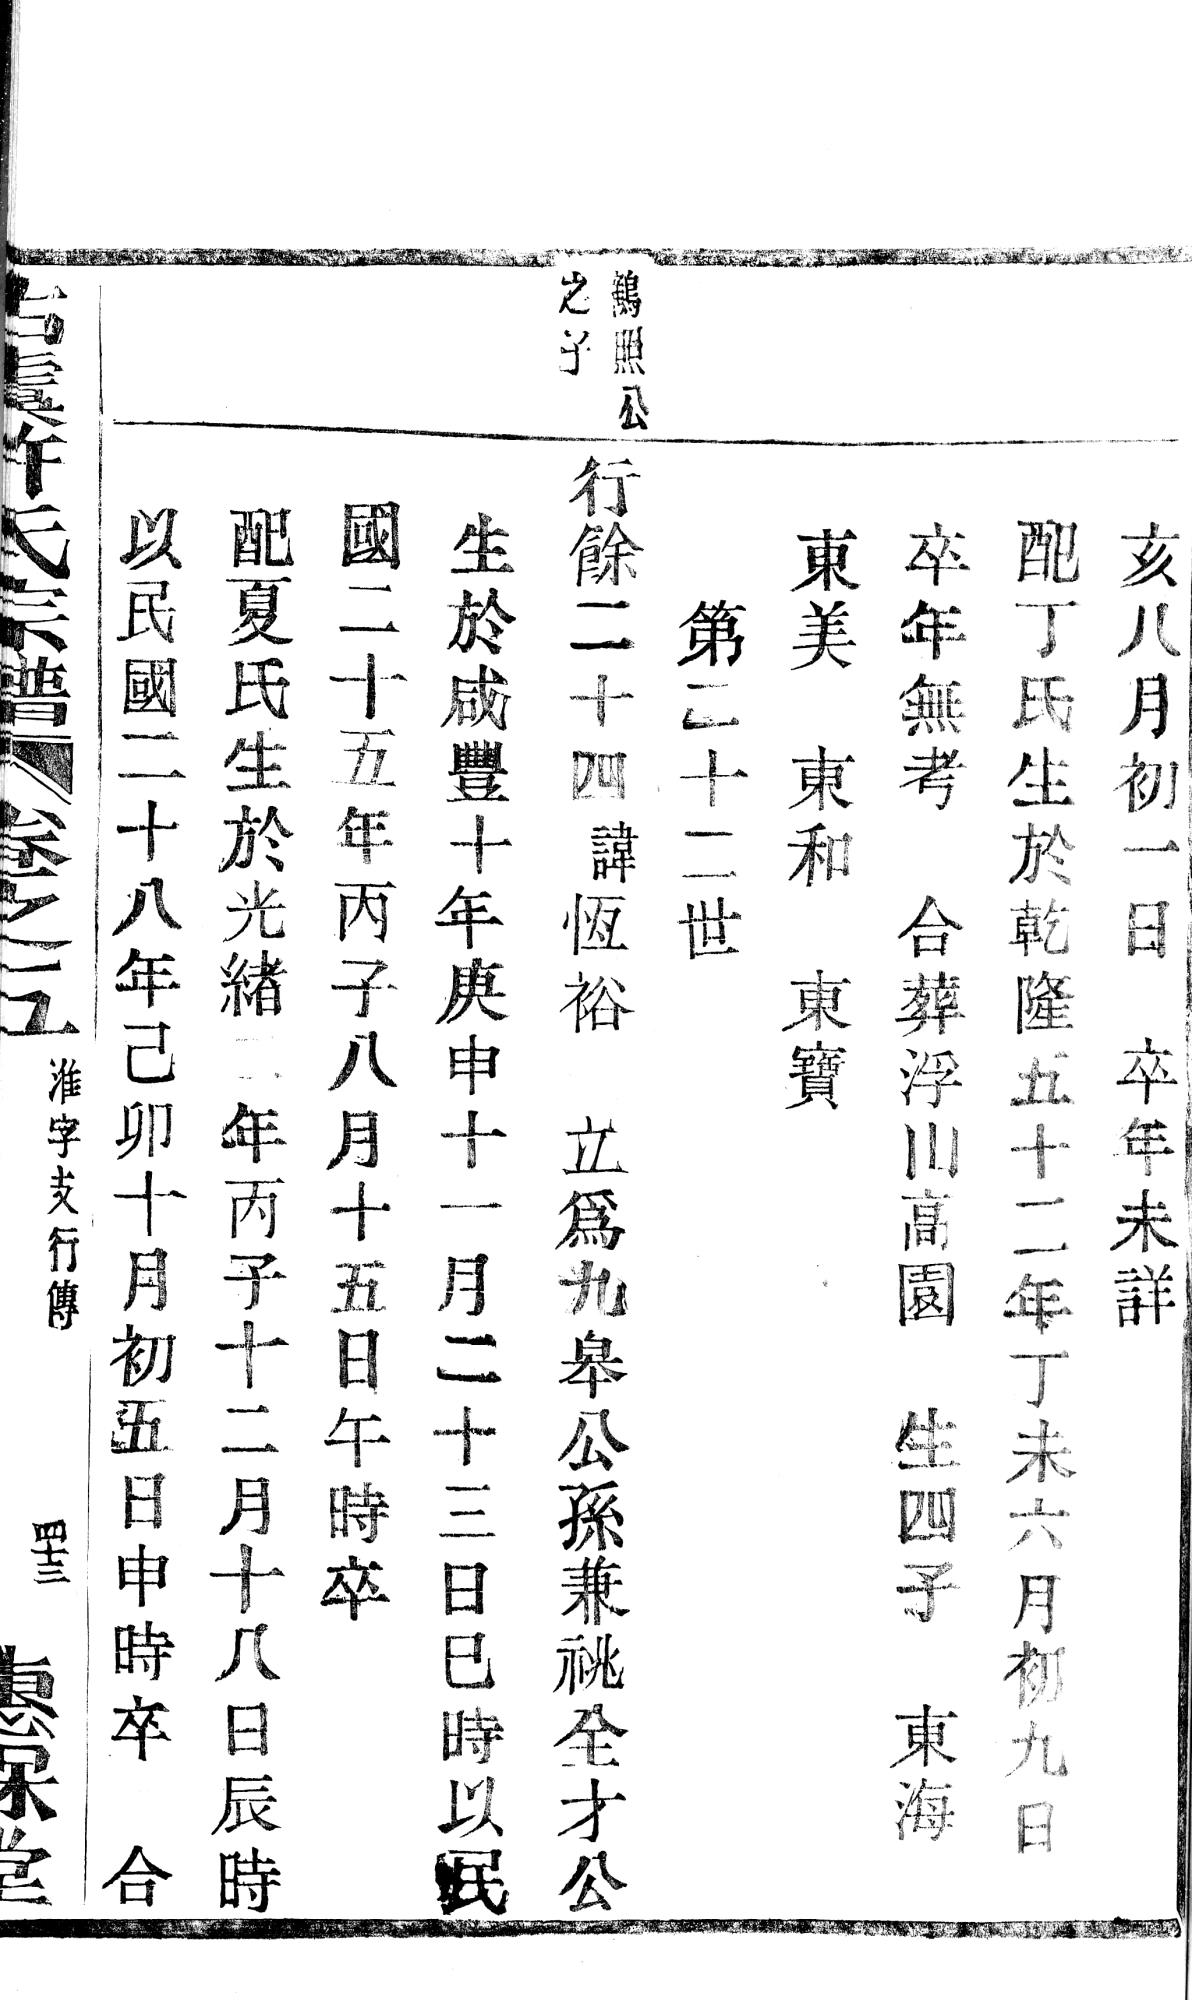 亥八月初一日　卒年未詳
配丁氏生於乾隆五十二年丁未六月初九日
卒年無考　合葬浮山高園　生四子　東海
東美　東和　東寶
第二十二世
鶴照公
之子
行餘二十四諱恆裕　立爲九皋公孫兼祧全才公
生於咸豐十年庚申十一月二十三日巳時以民
國二十五年丙子八月十五日午時卒
配夏氏生於光緒二年丙子十二月十八日辰時
以民國二十八年己卯十月初五日申時卒　合
古虞許氏宗譜　卷之五
淮字支行傳
四十三
惠保堂